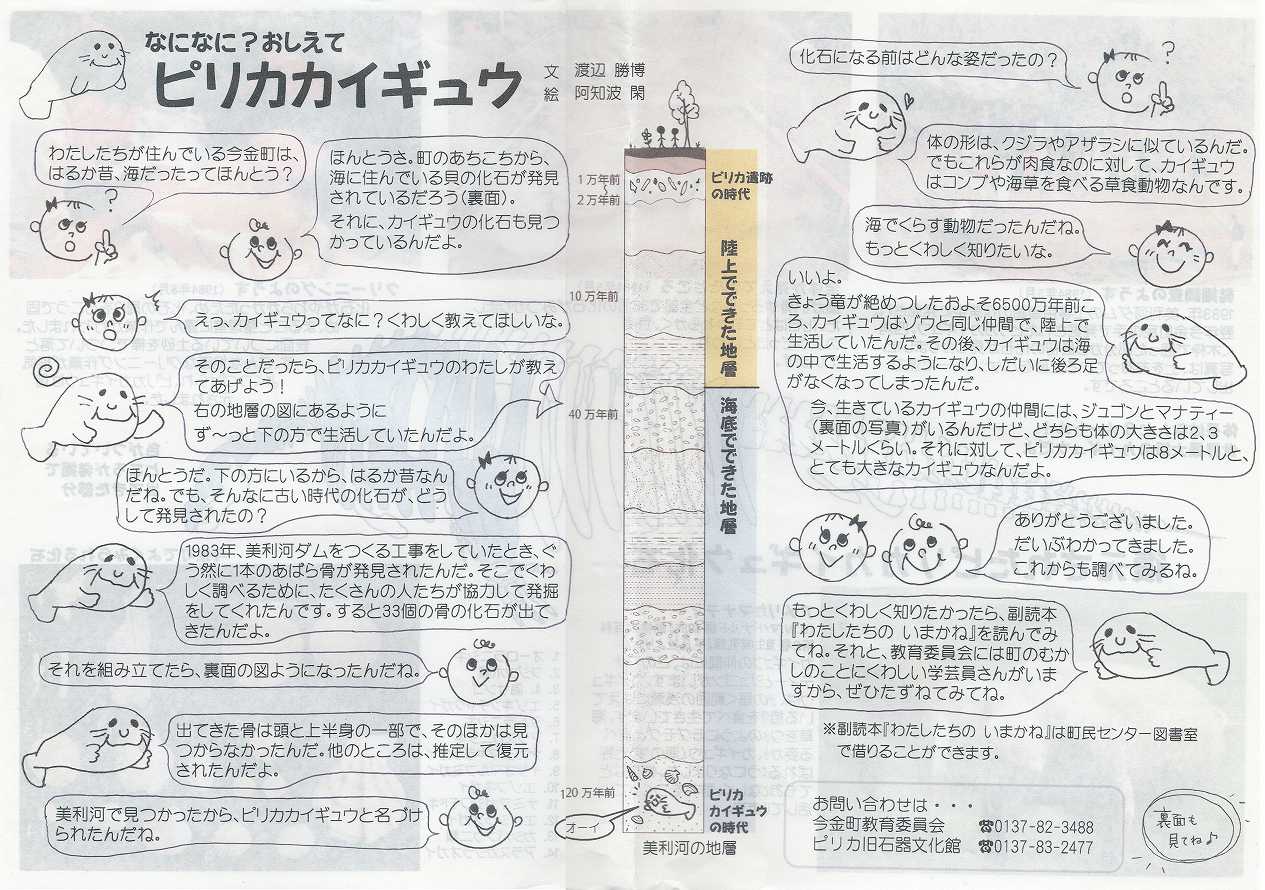 なになに？おしえて
ピリカカイギュウ
文 渡辺 勝博
絵 阿知波 閑
わたしたちが住んでいる今金町は、
はるか昔、海だったってほんとう？
？
ほんとうさ。町のあちこちから、
海に住んでいる貝の化石が発見
されているだろう（裏面）。
それに、カイギュウの化石も見つ
かっているんだよ。
えっ、カイギュウってなに？くわしく教えてほしいな。
そのことだったら、ピリカカイギュウのわたしが教え
てあげよう！
右の地層の図にあるように
ず〜っと下の方で生活していたんだよ。
ほんとうだ。下の方にいるから、はるか昔なん
だね。でも、そんなに古い時代の化石が、どう
して発見されたの？
1983年、美利河ダムをつくる工事をしていたとき、ぐ
う然に1本のあばら骨が発見されたんだ。そこでくわ
しく調べるために、たくさんの人たちが協力して発掘
をしてくれたんです。すると33個の骨の化石が出て
きたんだよ。
それを組み立てたら、裏面の図ようになったんだね。
出てきた骨は頭と上半身の一部で、そのほかは見
つからなかったんだ。他のところは、推定して復元
されたんだよ。
美利河で見つかったから、ピリカカイギュウと名づけ
られたんだね。
1万年前
2万年前
10万年前
40万年前
120万年前
ピリカ遺跡
の時代
陸上でできた地層
海底でできた地層
ピリカ
カイギュウ
の時代
オーイ
美利河の地層
化石になる前はどんな姿だったの？
？
体の形は、クジラやアザラシに似ているんだ。
でもこれらが肉食なのに対して、カイギュウ
はコンブや海草を食べる草食動物なんです。
海でくらす動物だったんだね。
もっとくわしく知りたいな。
いいよ。
きょう竜が絶めつしたおよそ6500万年前ご
ろ、カイギュウはゾウと同じ仲間で、陸上で
生活していたんだ。その後、カイギュウは海
の中で生活するようになり、しだいに後ろ足
がなくなってしまったんだ。
今、生きているカイギュウの仲間には、ジュゴンとマナティー
（裏面の写真）がいるんだけど、どちらも体の大きさは2、3
メートルくらい。それに対して、ピリカカイギュウは8メートルと、
とても大きなカイギュウなんだよ。
ありがとうございました。
だいぶわかってきました。
これからも調べてみるね。
もっとくわしく知りたかったら、副読本
『わたしたちの いまかね』を読んでみ
てね。それと、教育委員会には町のむか
しのことにくわしい学芸員さんがいま
すから、ぜひたずねてみてね。
※副読本『わたしたちの いまかね』は町民センター図書室
で借りることができます。
お問い合わせは・・・
今金町教育委員会 ☎0137-82-3488
ピリカ旧石器文化館 ☎0137-83-2477
裏面も
見てね♪